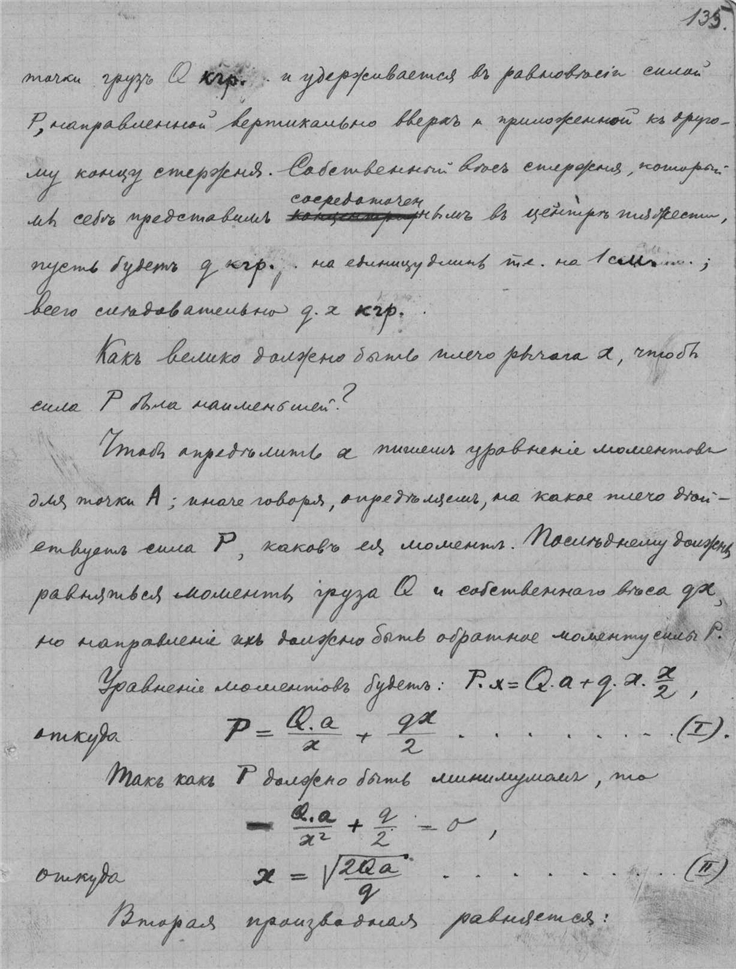 135.
точки грузъ Q кгр. и удерживается въ равновѣсіи силой
P, направленной вертикально вверхъ и приложенной къ друго-
му концу стержня. Собственный вѣсъ стержня, который
сосредоточен
мы себѣ представимъ концентрирнымъ въ центрѣ тяжести,
пусть будетъ q кгр. на единицу длины т.е. на 1 см. ;
всего слѣдовательно q.x кгр.
Какъ велико должно быть плечо рычага x, чтобы
сила P была наименьшей?
Чтобы опредѣлить x пишемъ уравненіе моментовъ
для точки A; иначе говоря, опредѣляемъ, на какое плечо дѣй-
ствуетъ сила P, каковъ ея моментъ. Послѣднему должны
равняться моменты груза Q и собственнаго вѣса qx,
но направленіе ихъ должно быть обратное моменту силы P.
Уравненіе моментовъ будетъ: P.x = Q.a + q.x. x/2 ,
откуда P = Q.a/x + qx/2 . . . . . . . . . (I).
Такъ какъ P должно быть минимумомъ, то
- Q.a/x² + q/2 = 0 ,
откуда x = √2Qa/q . . . . . . . . . . (II)
Вторая производная равняется: